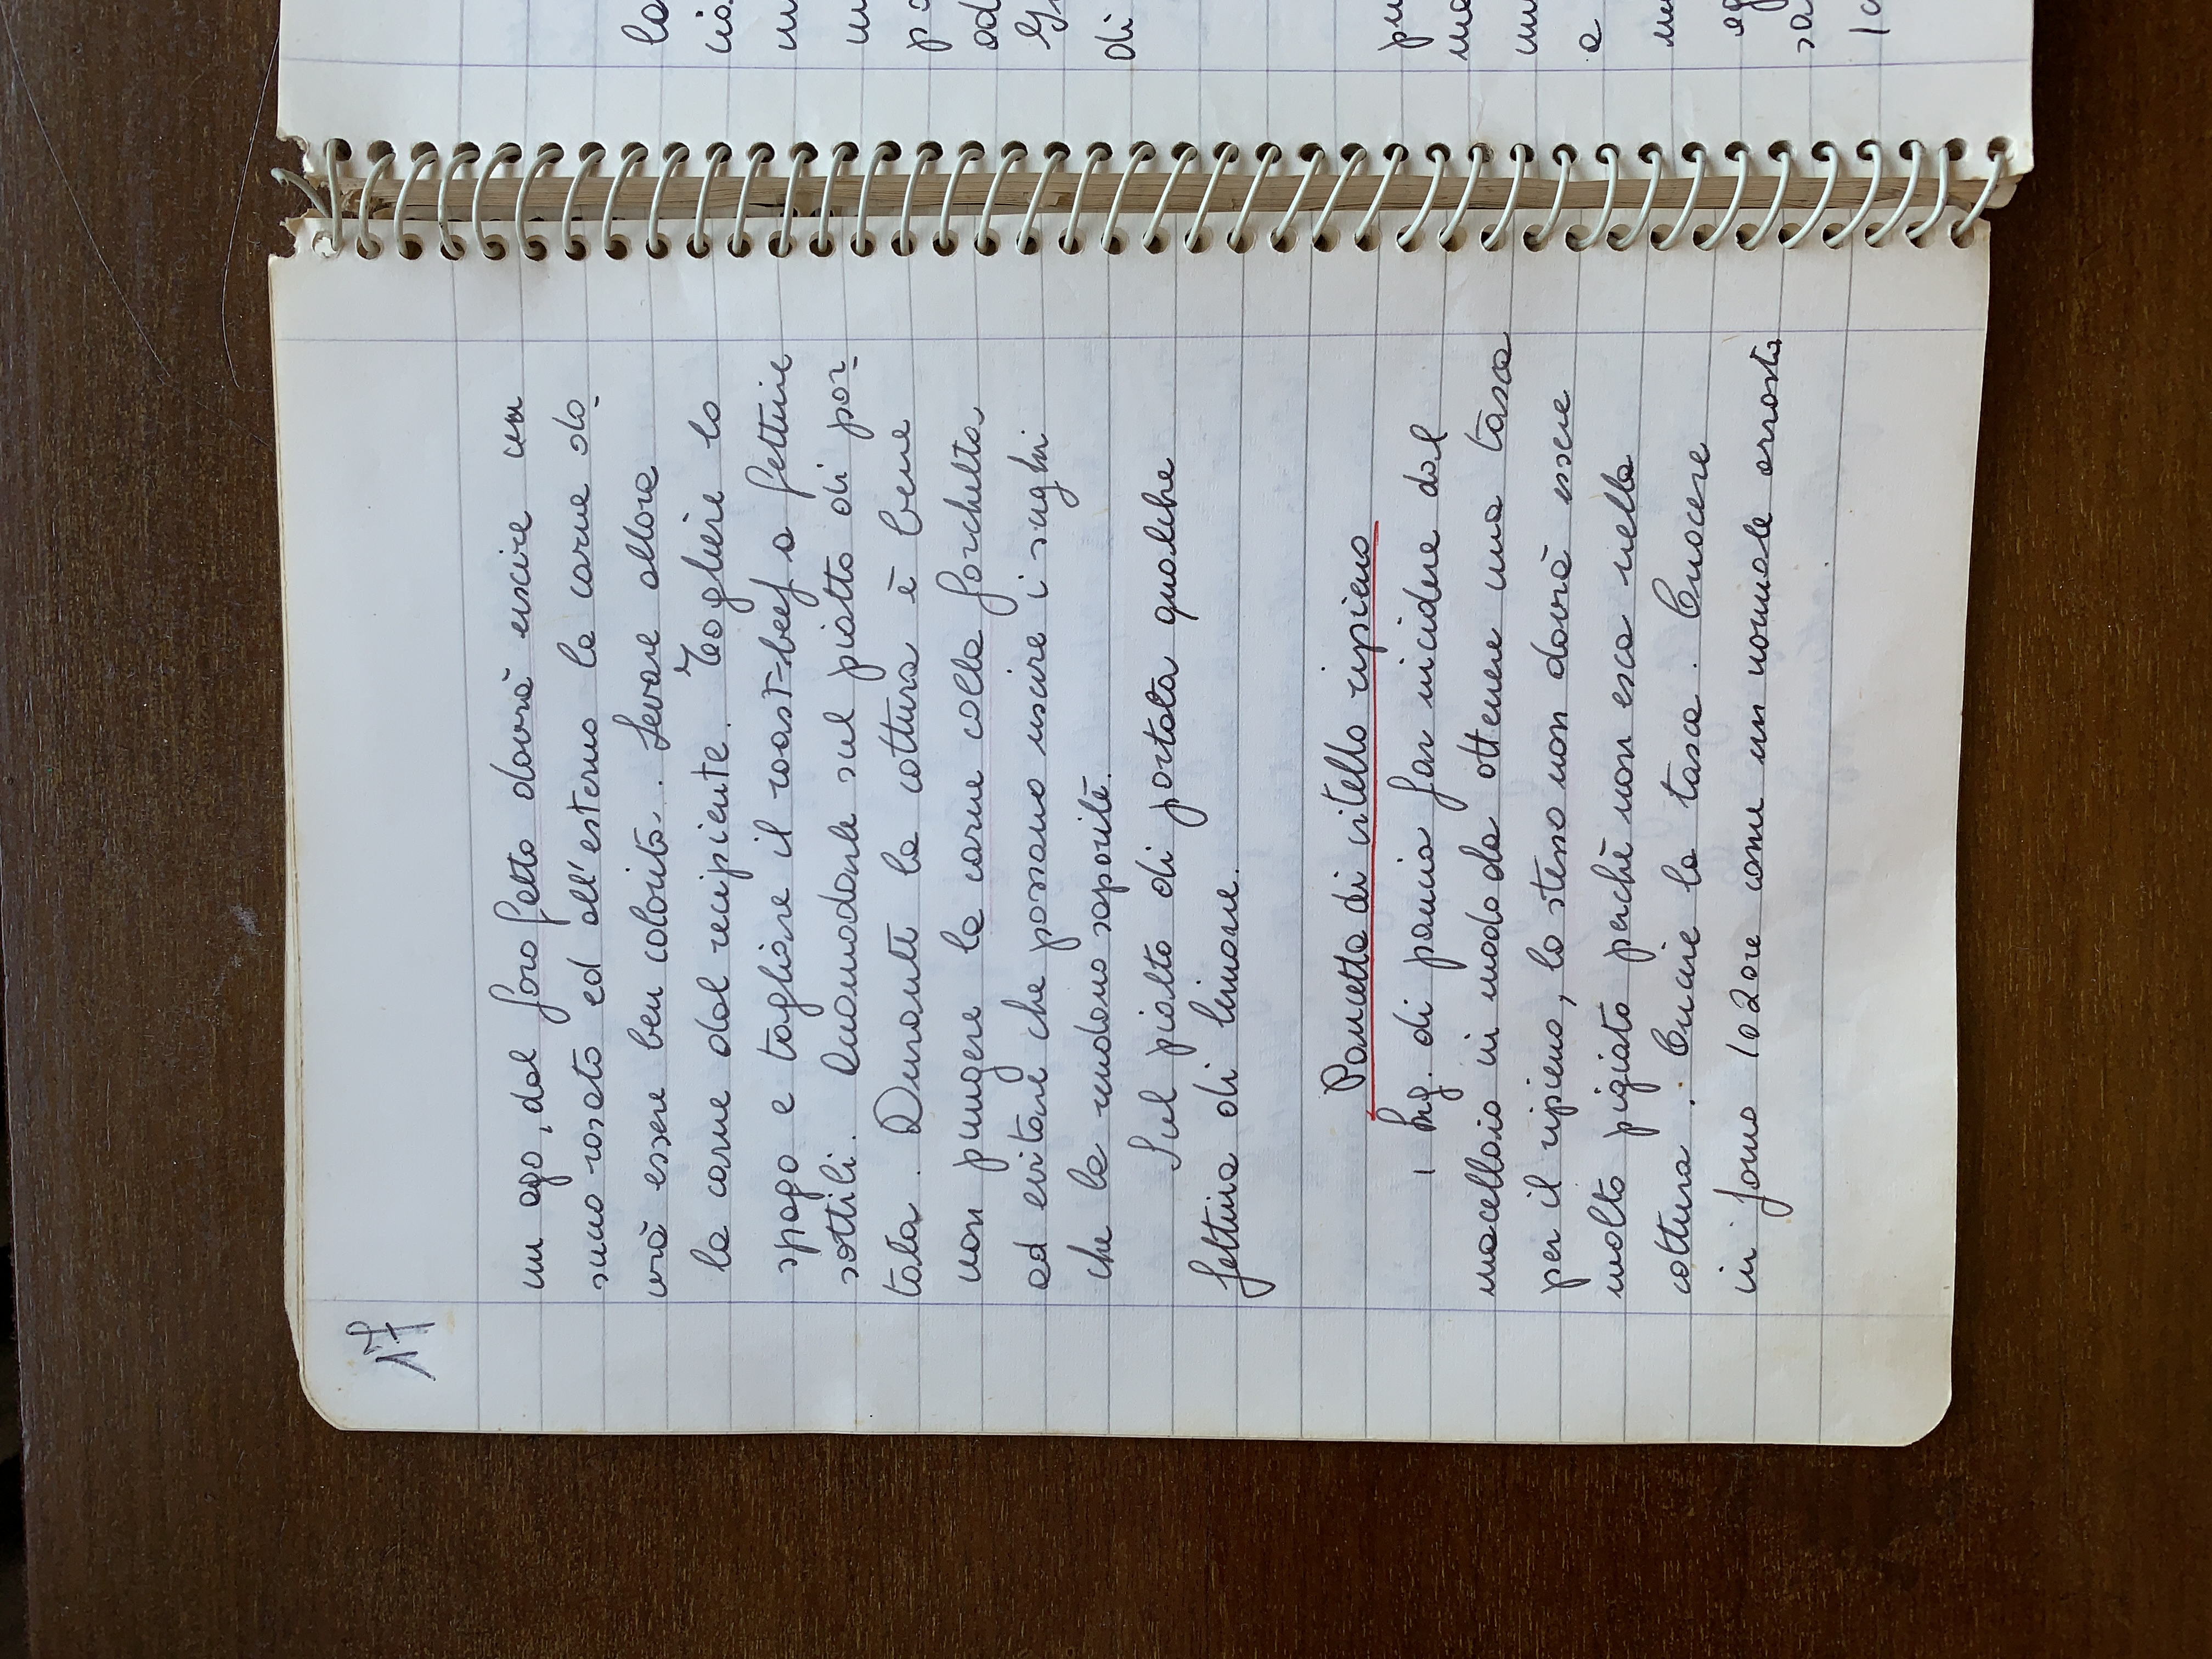 17
un ago, dal foro fatto dovrà uscire un
succo rosato ed all'esterno la carne do-
vrà essere ben colorita. Levare allora
la carne dal recipiente. Togliere lo
spago e tagliare il roast-beef a fettine
sottili. Accomodarle sul piatto di por-
tata. Durante la cottura è bene
non pungere la carne colla forchetta
ad evitare che possano uscire i sughi
che la rendono saporite.
Sul piatto di portata qualche
fettina di limone.
Pancetta di vitello ripieno
1 Kg. di pancia far incidere dal
macellaio in modo da ottenere una tasca
per il ripieno, lo stesso non dovrà essere
molto pigiato perchè non esca nella
cottura. Cucire la tasca. Cuocere
in forno 1 o 2 ore come un normale arrosto
di